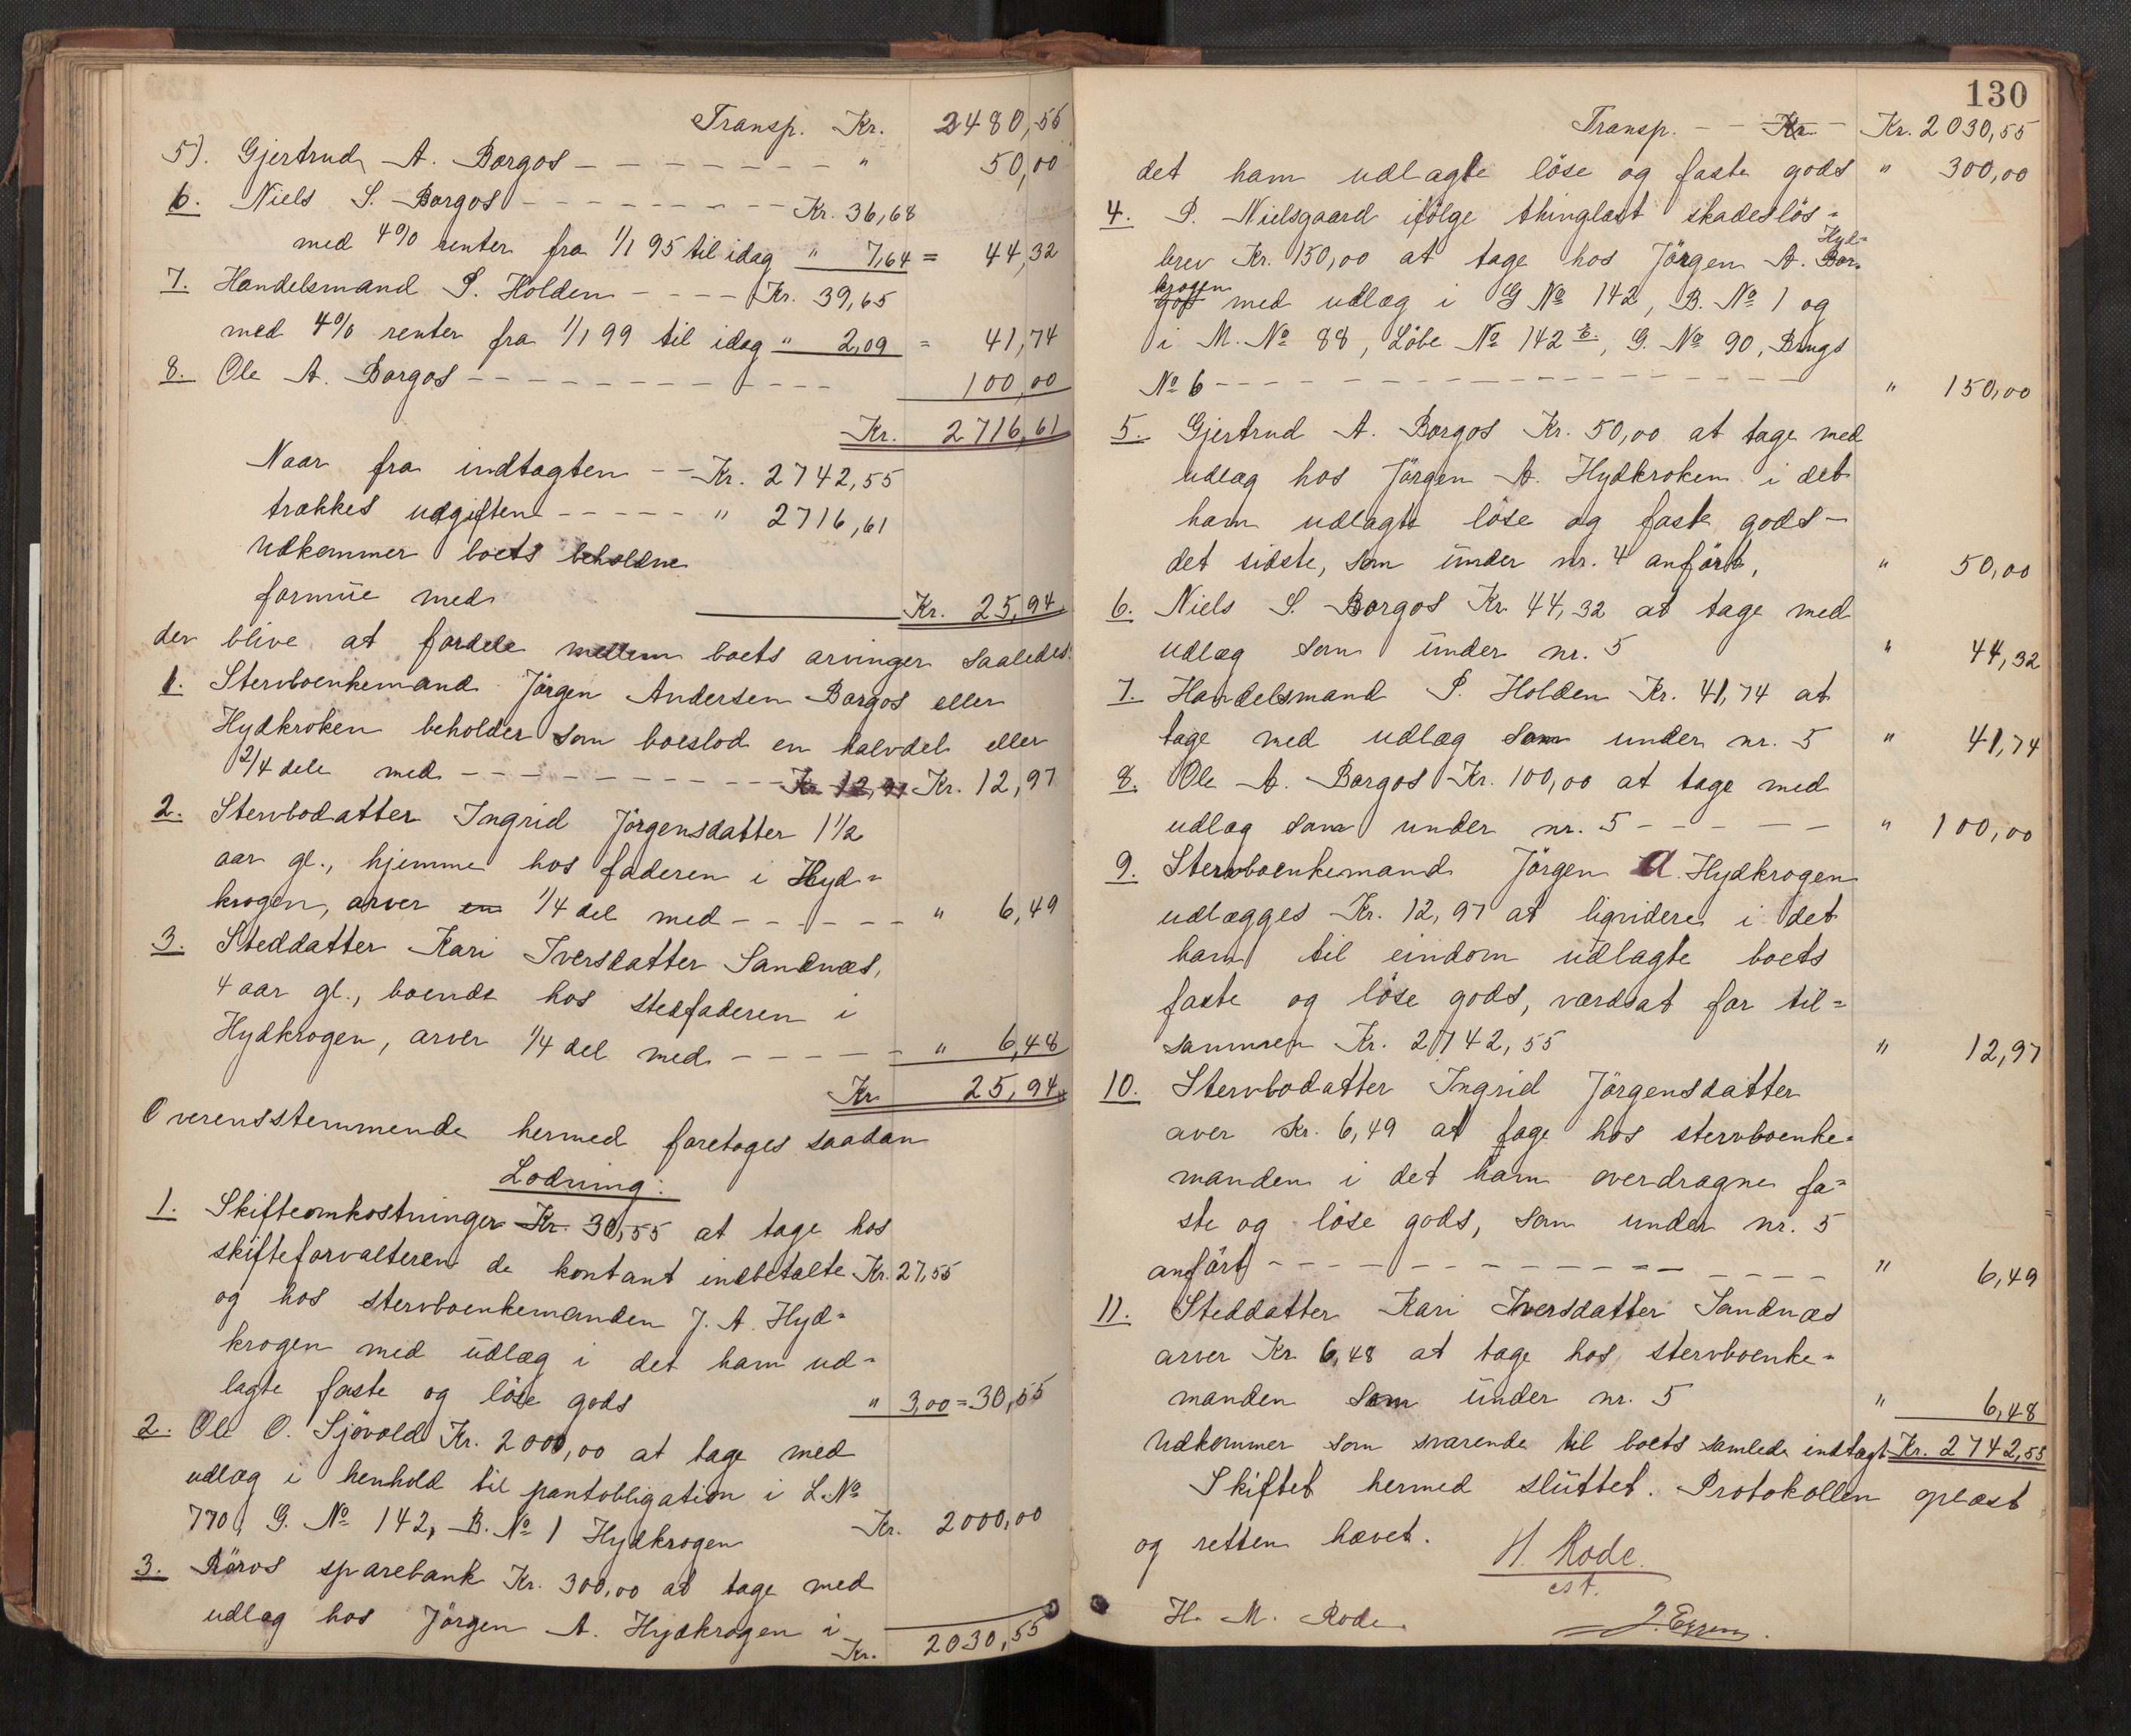 Transp. Kr. 2480,55
5). Gjertrud A. Borgos - - - - - - - - " 50,00
6. Niels S. Borgos - - - - - - - - - Kr. 36,68
med 4% renter fra 1/1 95 til idag " 7,64 = 44,32
7. Handelsmand P. Holden - - - - Kr. 39,65
med 4% renter fra 1/1 99 til idag " 2,09 = 41,74
8. Ole A. Borgos - - - - - - - - - - - - 100,00
Kr. 2716,61
Naar fra indtægten - - Kr. 2742,55
trækkes udgiften - - - - - " 2716,61
udkommer boets beholdne
formue med Kr. 25,94
der blive at fordele mellem boets arvinger saaledes:
1. Stervboenkemand Jörgen Andersen Borgos eller
Hydkroken beholder som boeslod en halvdel eller
2/4 dele med - - - - - - - - - - Kr. 12,97 Kr. 12,97
2. Stervbodatter Ingrid Jörgensdatter 1 1/2
aar gl., hjemme hos faderen i Hyd=
krogen, arver en 1/4 del med - - - - - - " 6,49
3. Steddatter Kari Iversdatter Sandnæs,
4 aar gl., boende hos stedfaderen i
Hydkrogen, arver 1/4 del med - - - - - " 6,48
Kr. 25,94
Overensstemmende hermed foretoges saadan
Lodning:
1. Skifteomkostninger Kr. 30,55 at tage hos
skifteforvalteren de kontant indbetalte Kr. 27,55
og hos stervboenkemanden J. A. Hyd=
krogen med udlæg i det ham ud=
lagte faste og löse gods " 3,00 = 30,55
2. Ole O. Sjövold Kr. 2000,00 at tage med
udlæg i henhold til pantobligation i L. No
770, G. No 142, B. No 1 Hydkrogen Kr. 2000,00
3. Röros sparebank Kr. 300,00 at tage med
udlæg hos Jörgen A. Hydkrogen i
Kr. 2030,55
130
Transp. - - Kr. - Kr. 2030,55
det ham udlagte löse og faste gods " 300,00
4. P. Nielsgaard ifölge thinglæst skadeslös=
Hyd=
brev Kr. 150,00 at tage hos Jörgen A. Bor
krogen
gos med udlæg i G No 142, B. No 1 og
i M. No 88, Löbe No 142 b., G. No 90, Brugs
No 6 - - - - - - - - - - - - - - - - " 150,00
5. Gjertrud A. Borgos Kr. 50,00 at tage med
udlæg hos Jörgen A. Hydkroken i det
ham udlagte löse og faste gods -
det sidste, som under nr. 4 anfört, " 50,00
6. Niels S. Borgos Kr. 44,32 at tage med
udlæg som under nr. 5 " 44,32
7. Handelsmand P. Holden Kr. 41,74 at
tage med udlæg som under nr. 5 " 41,74
8. Ole A. Borgos Kr. 100,00 at tage med
udlæg som under nr. 5 - - - - - " 100,00
9. Stervboenkemand Jörgen A. Hydkrogen
udlægges Kr. 12,97 at ligvidere i det
ham til eindom udlagte boets
faste og löse gods, værdsat for til=
sammen Kr. 2742,55 " 12,97
10. Stervbodatter Ingrid Jörgensdatter
aver Kr. 6,49 at tage hos stervboenke=
manden i det ham overdragne fa=
ste og löse gods, som under nr. 5
anfört - - - - - - - - - - - - - - " 6,49
11. Steddatter Kari Iversdatter Sandnæs
arver Kr. 6,48 at tage hos stervboenke=
manden som under nr. 5 " 6,48
Udkommer som svarende til boets samlede indtægt Kr. 2742,55
Skiftet hermed sluttet. Protokollen oplæst
og retten hævet.
H. Rode.
cst.
H. M. Rode. J. Eggen.